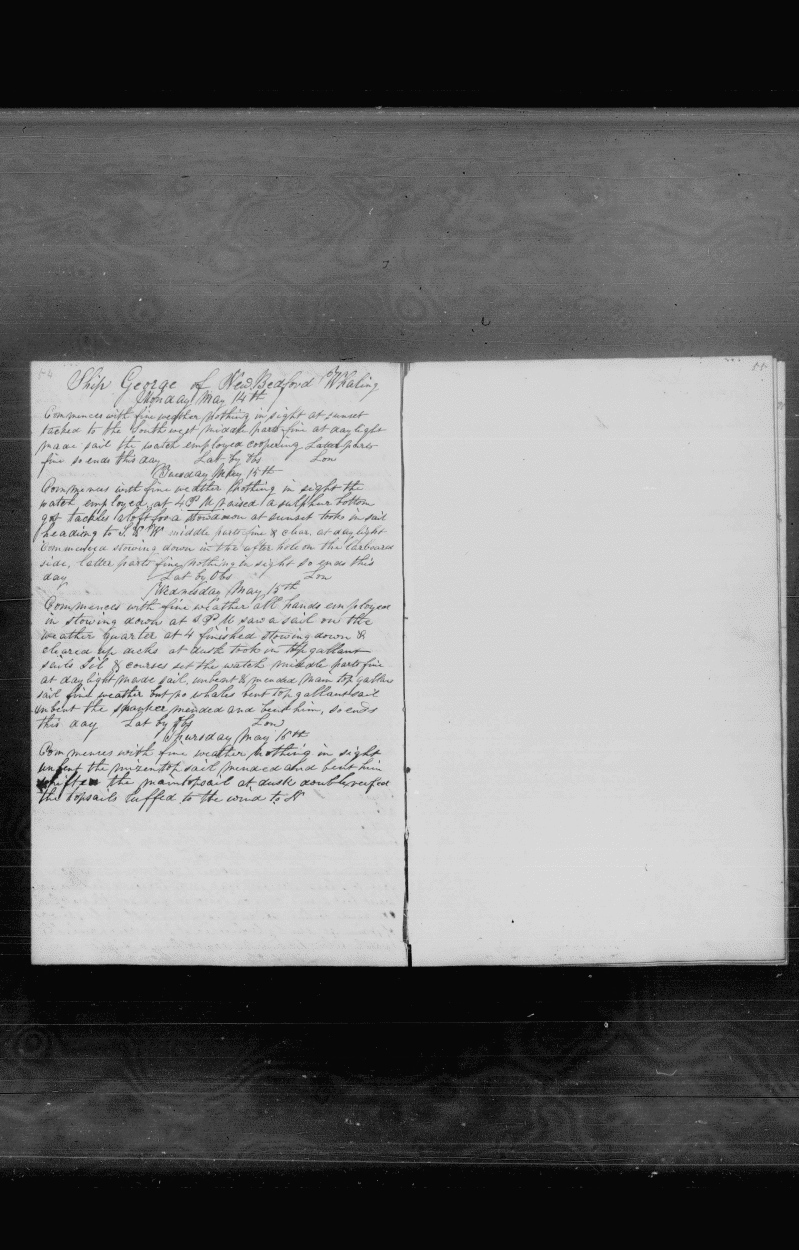 54
Ship George of New Bedford Whaling
Monday May 14th
Commences with fine weather nothing in sight at sunset
tacked to the Southwest middle parts fine at daylight
made sail the watch employed coopering Latter parts
fine so ends this day Lat by Obs Lon
Tuesday May 15th
Commences with fine weather Nothing in sight the
watch employed at 4 P M raised a sulphur bottom
got tackles aloft for a stowdown at sunset took in sail
heading to S W middle parts fine & clear, at daylight
commenced stowing down in the after hole on the larboard
side, latter parts fine nothing in sight so ends this
day Lat by Obs Lon
Wednesday May 15th
Commences with fine weather all hands employed
in stowing down at P M saw a sail on the
weather quarter at 4 finished stowing down &
cleared up decks at dusk took in top gallant
sails Jib & courses set the watch middle parts fine
at daylight made sail, unbent & mended main top gallant
sail fine weather but no whales bent top gallant sail
unbent the spanker mended and bent him, so ends
this day Lat by Obs Lon
Thursday May 16th
Commences with fine weather Nothing in sight
unbent the mizentop sail mended and bent him
the maintopsail at dusk double reefed
the topsails luffed to the wind to N
55